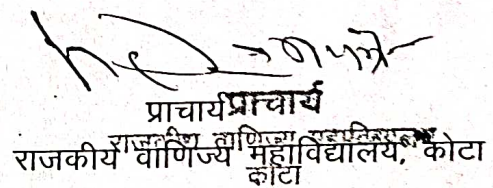 प्राचार्य प्राचार्य
राजकीय वाणिज्य महाविद्यालय
राजकीय वाणिज्य महाविद्यालय, कोटा
कोटा